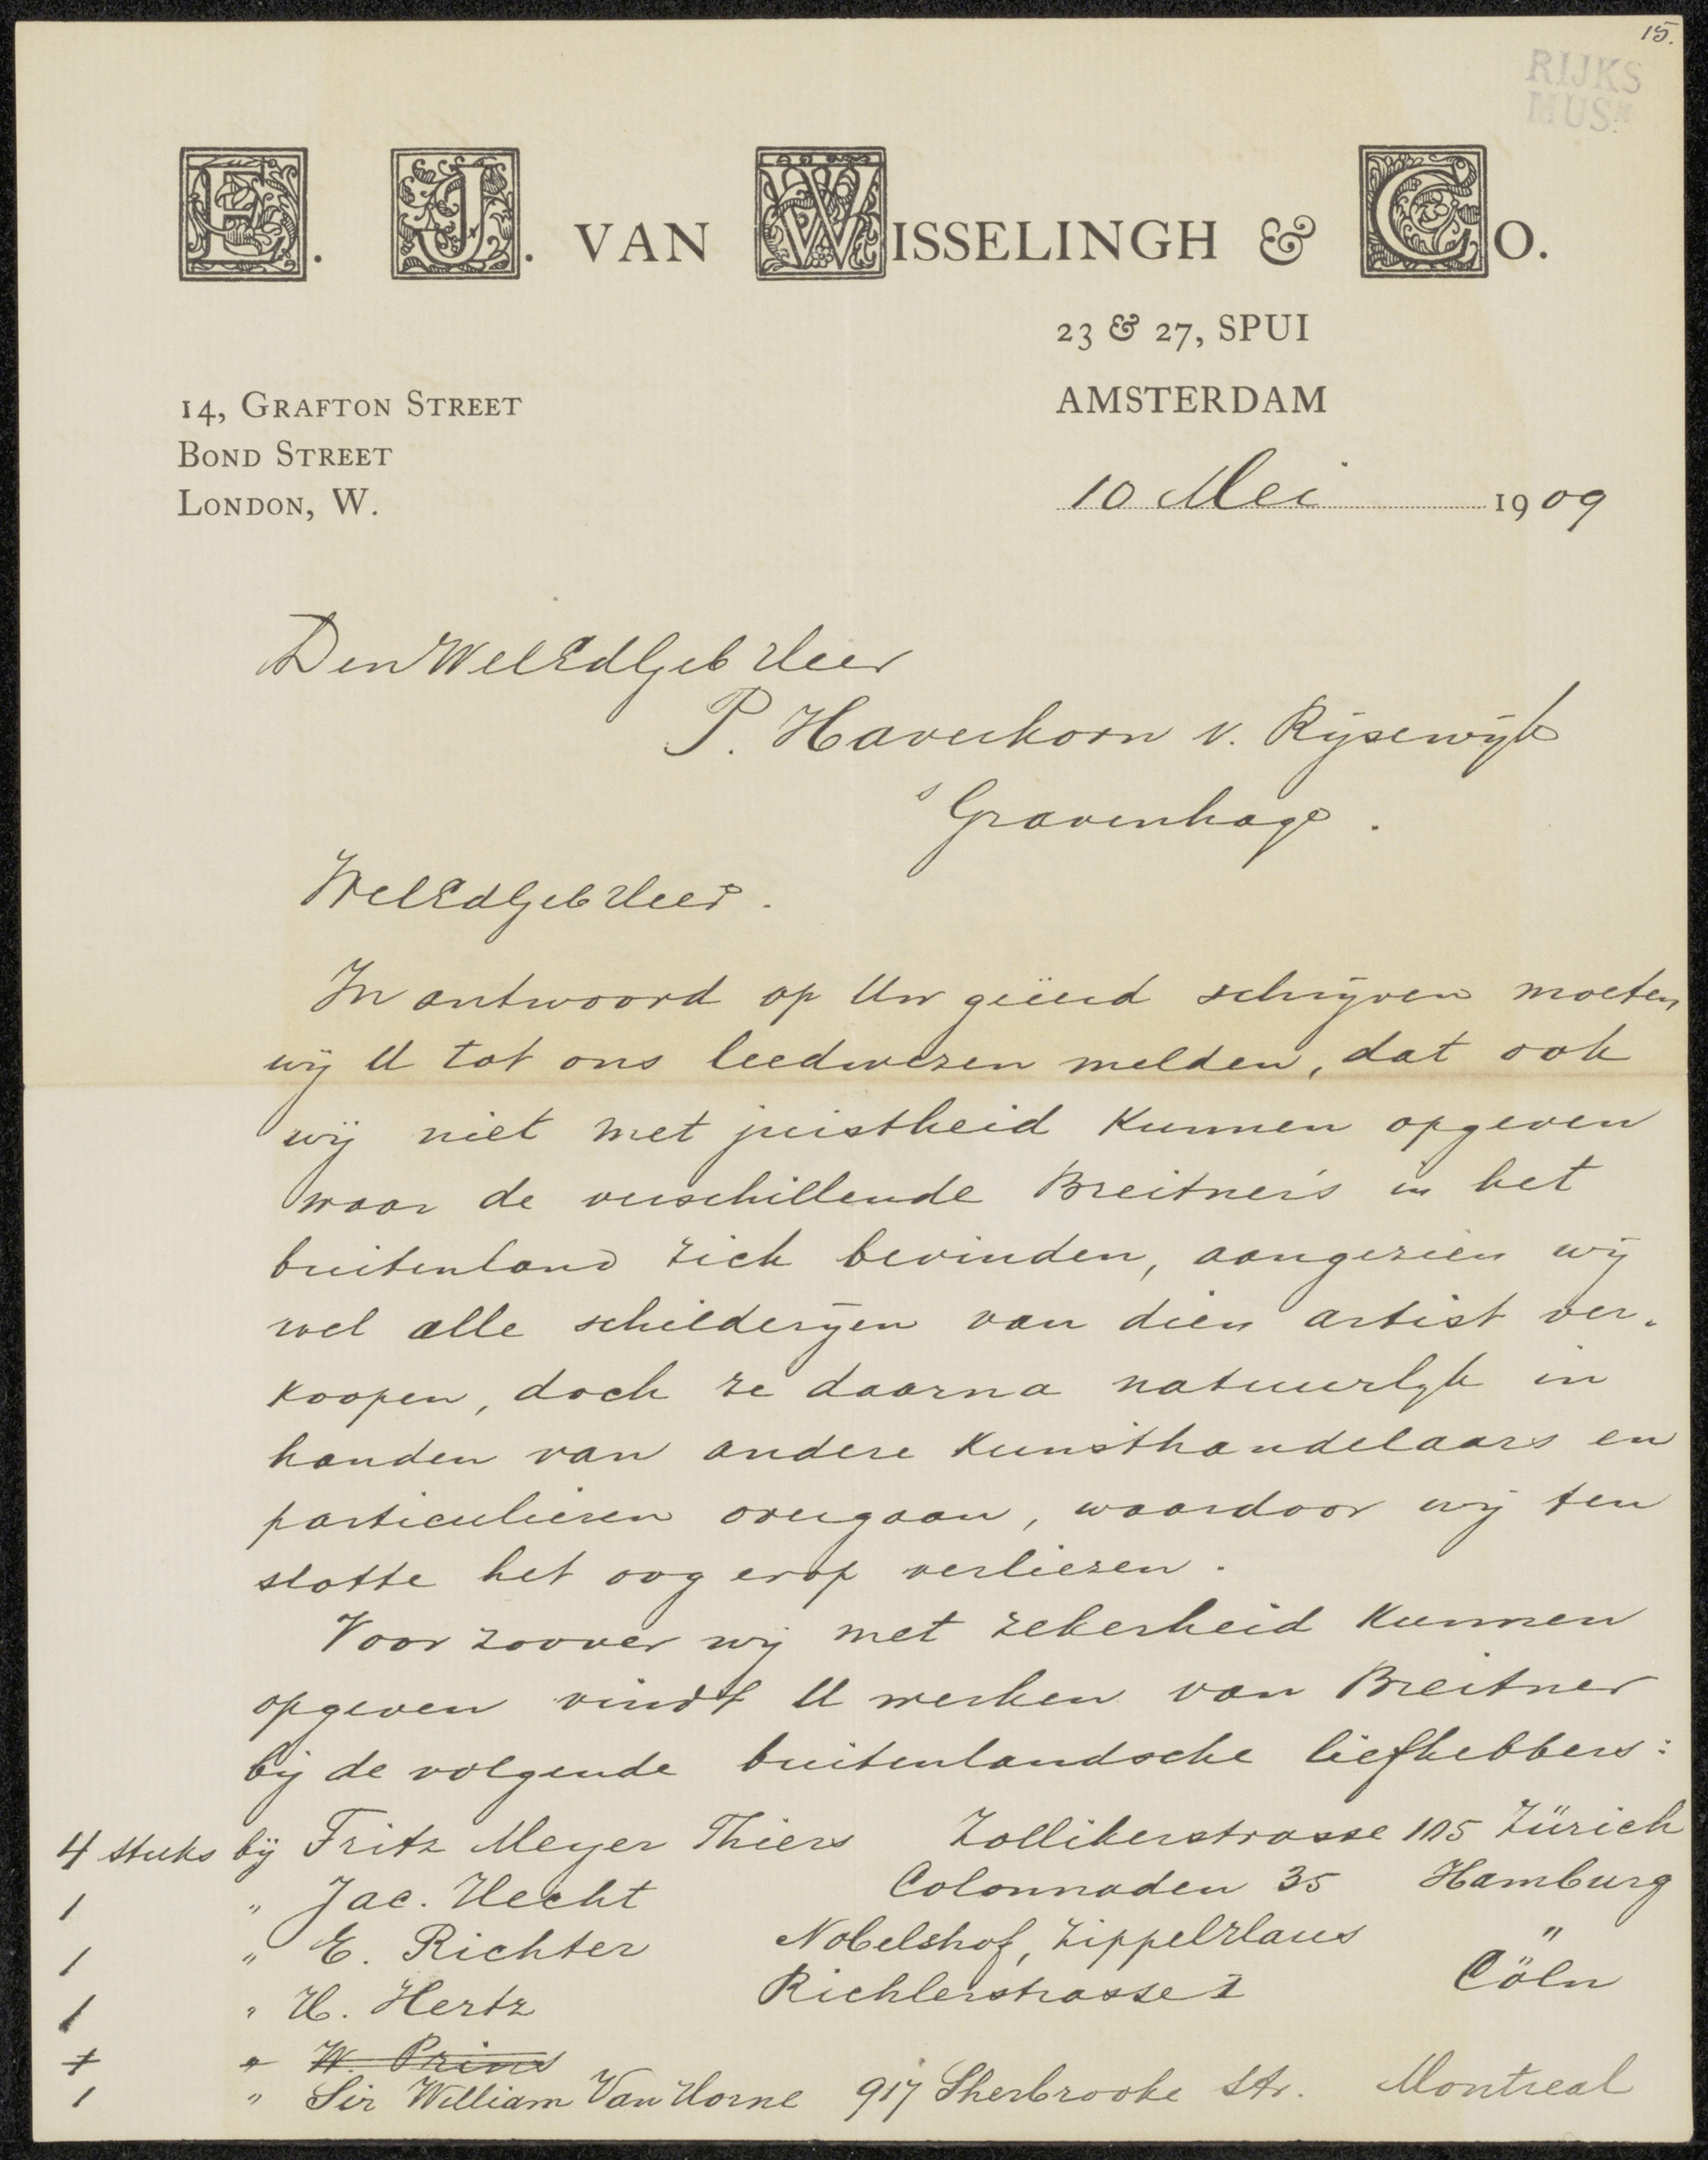 15.
RIJKS
MUSM
E. J. VAN WISSELINGH & CO.
23 & 27, SPUI
14, GRAFTON STREET
AMSTERDAM
BOND STREET
LONDON, W.
10 Mei 1909
Den WelEdGeb Heer
P. Haverkorn v. Rijsewijk
's Gravenhage.
WelEdGeb Heer.
In antwoord op Uw geëerd schrijven moeten
wij U tot ons leedwezen melden, dat ook
wij niet met juistheid kunnen opgeven
waar de verschillende Breitner's in het
buitenland zich bevinden, aangezien wij
wel alle schilderijen van dien artist ver-
koopen, doch ze daarna natuurlijk in
handen van andere kunsthandelaars en
particulieren overgaan, waardoor wij ten
slotte het oog erop verliezen.
Voor zoover wij met zekerheid kunnen
opgeven vindt U werken van Breitner
bij de volgende buitenlandsche liefhebbers:
4 stuks bij Fritz Meyer Thiers Zollikerstrasse 105 Zürich
1 " Jac. Hecht Colonnaden 35 Hamburg
1 " E. Richter Nobelshof, Zippelhaus "
1 " H. Hertz Richlerstrasse 1 Cöln
1 " W. Prins
1 " Sir William Van Horne 917 Sherbrooke Str. Montreal